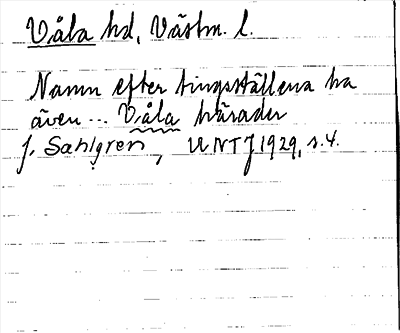 Våla hd, Västm. l.
Namn efter tingsställena ha
även ... Våla härader
J. Sahlgren, UNTJ 1929, s. 4.